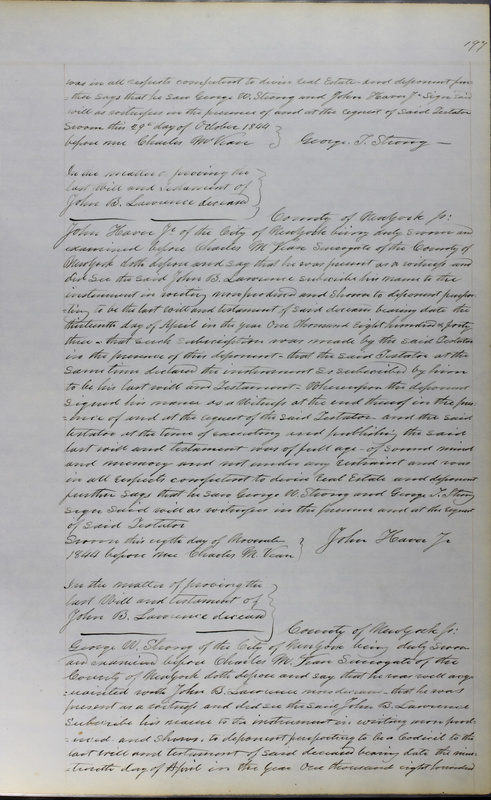 197
was in all respects competent to devise real Estate and deponent fur
-ther says that he saw George W. Strong and John Haver Jr. sign said
will as witnesses in the presence of and at the request of said Testator
Sworn this 29th day of October 1844
before me Charles McVean } George T. Strong
In the matter of proving the
last Will and Testament of
John B. Lawrence deceased
County of New York Ss:
John Haver Jr. of the City of New York being duly Sworn and
examined before Charles McVean Surrogate of the County of
New York doth depose and say that he was present as a witness and
did see the said John B. Lawrence subscribe his name to the
instrument in writing now produced and Shown to deponent purpor
-ting to be the last will and testament of said deceased bearing date the
thirteenth day of April in the year One Thousand Eight hundred & forty
three - that such subscription was made by the said Testator
in the presence of this deponent - that the said Testator at the
same time declared the instrument so subscribed by him
to be his last will and Testament - Whereupon the deponent
signed his name as a Witness at the end thereof in the pres
-ence of and at the request of the said Testator and the said
testator at the time of executing and publishing the said
last will and testament was of full age - of sound mind
and memory and not under any restraint and was
in all respects competent to devise real Estate and deponent
further says that he saw George W. Strong and George T. Strong
sign said will as witnesses in the presence and at the request
of said Testator
Sworn this eighth day of November
1844 before me Charles McVean } John Haver Jr
In the matter of proving the
last Will and testament of
John B. Lawrence deceased
County of New York Ss:
George W. Strong of the City of New York being duly Sworn
and examined before Charles McVean Surrogate of the
County of New York doth depose and say that he was well acq
-uainted with John B. Lawrence now deceased - that he was
present as a witness and did see the said John B. Lawrence
subscribe his name to the instrument in writing now prod
-uced and Shown to deponent purporting to be a Codicil to the
last will and testament of said deceased bearing date the nine
-teenth day of April in the Year One thousand eight hundred